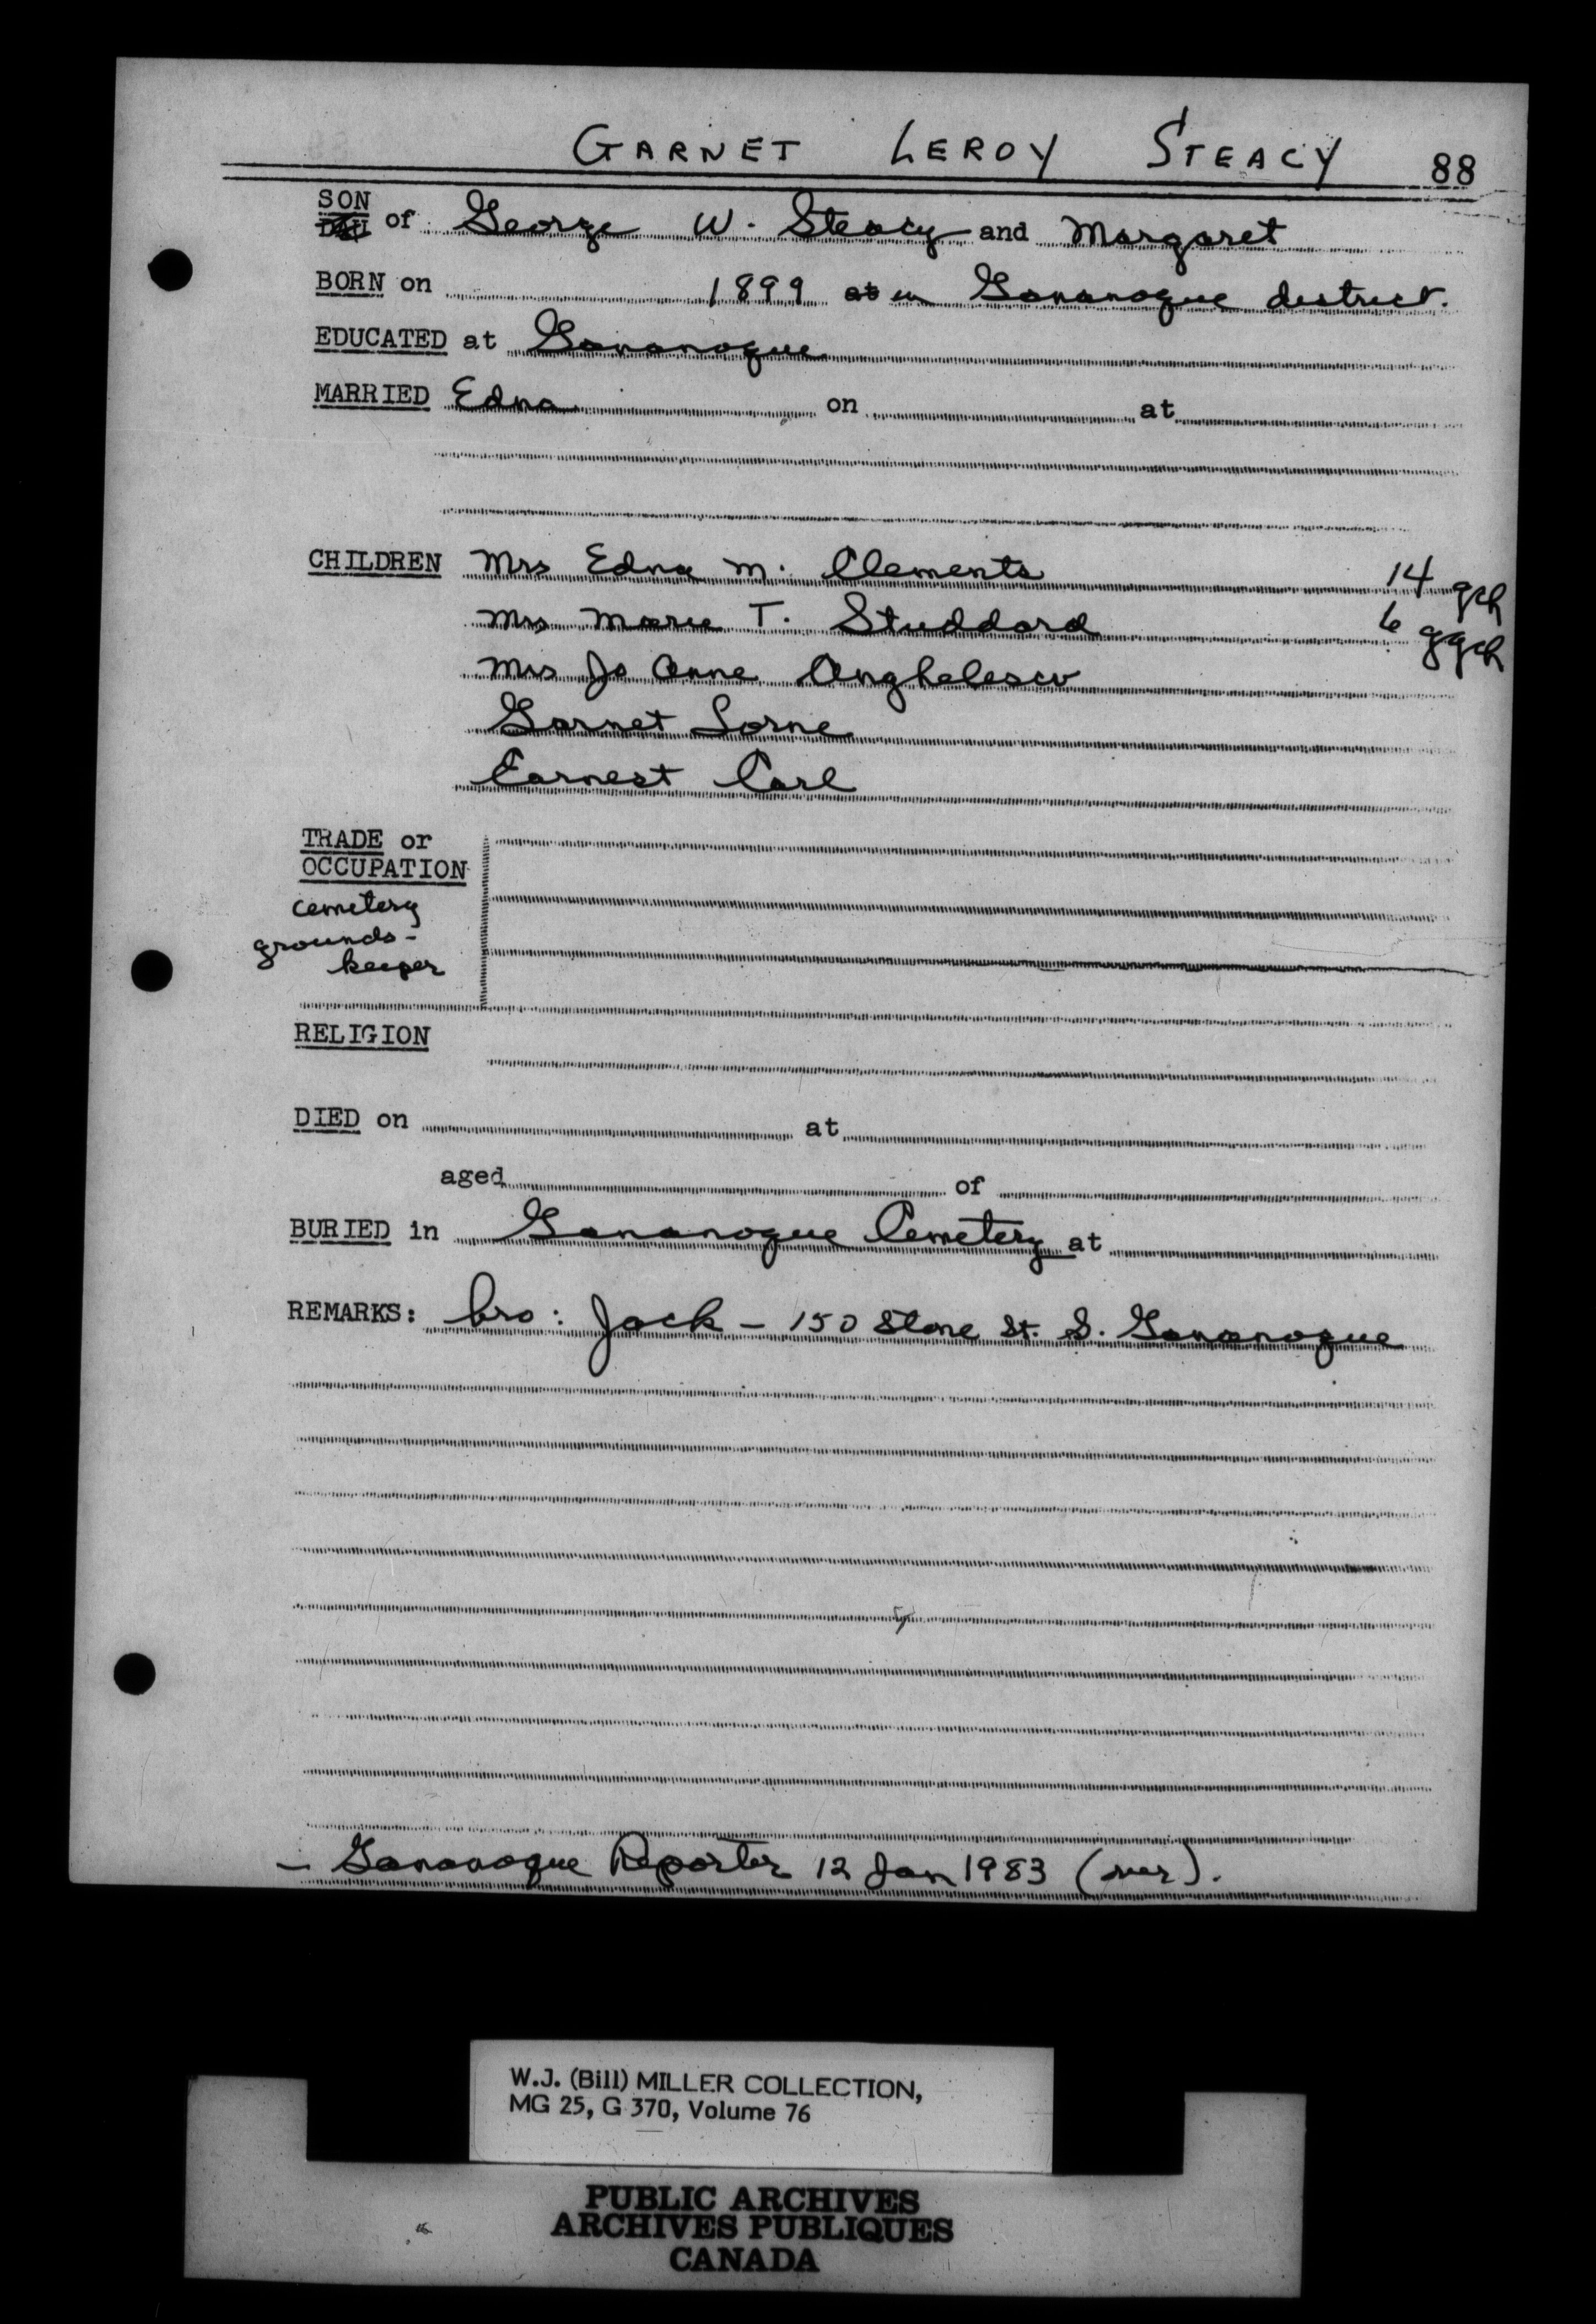 GARNET LEROY STEACY 88
SON
DAU of George W. Steacy and Margaret
BORN on 1899 at in Gananoque district.
EDUCATED at Gananoque
MARRIED Edna on at
CHILDREN Mrs Edna M. Clements 14 gch
Mrs Marie T. Studdard 6 ggch
Mrs Jo Anne Anghelescu
Garnet Lorne
Earnest Carl
TRADE or
OCCUPATION
cemetery
grounds-
keeper
RELIGION
DIED on at
aged of
BURIED in Gananoque Cemetery at
REMARKS: bro: Jack - 150 Stone St. S. Gananoque
- Gananoque Reporter 12 Jan 1983
W.J. (Bill) MILLER COLLECTION,
MG 25, G 370, Volume 76
PUBLIC ARCHIVES
ARCHIVES PUBLIQUES
CANADA